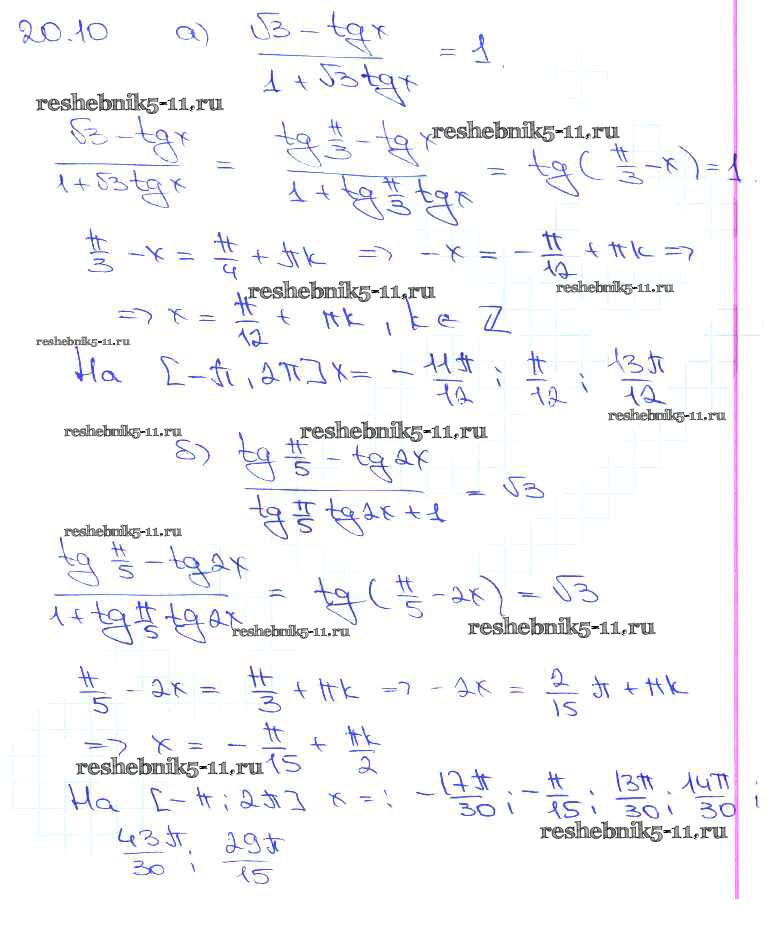 20.10 а) (√3 - tgx)/(1 + √3 tgx) = 1.
reshebnik5-11.ru
reshebnik5-11.ru
(√3 - tgx)/(1 + √3 tgx) = (tg π/3 - tgx)/(1 + tg π/3 tgx) = tg(π/3 - x) = 1
π/3 - x = π/4 + πk => -x = -π/12 + πk =>
reshebnik5-11.ru reshebnik5-11.ru
=> x = π/12 + πk, k ∈ ℤ
reshebnik5-11.ru
На [-π, 2π] x = -11π/12; π/12; 13π/12
reshebnik5-11.ru
reshebnik5-11.ru reshebnik5-11.ru
б) (tg π/5 - tg2x)/(tg π/5 tg2x + 1) = √3
reshebnik5-11.ru
(tg π/5 - tg2x)/(1 + tg π/5 tg2x) = tg(π/5 - 2x) = √3
reshebnik5-11.ru reshebnik5-11.ru
π/5 - 2x = π/3 + πk => -2x = 2/15 π + πk
=> x = -π/15 + πk/2
reshebnik5-11.ru
На [-π; 2π] x =: -17π/30; -π/15; 13π/30; 14π/30;
reshebnik5-11.ru
43π/30; 29π/15